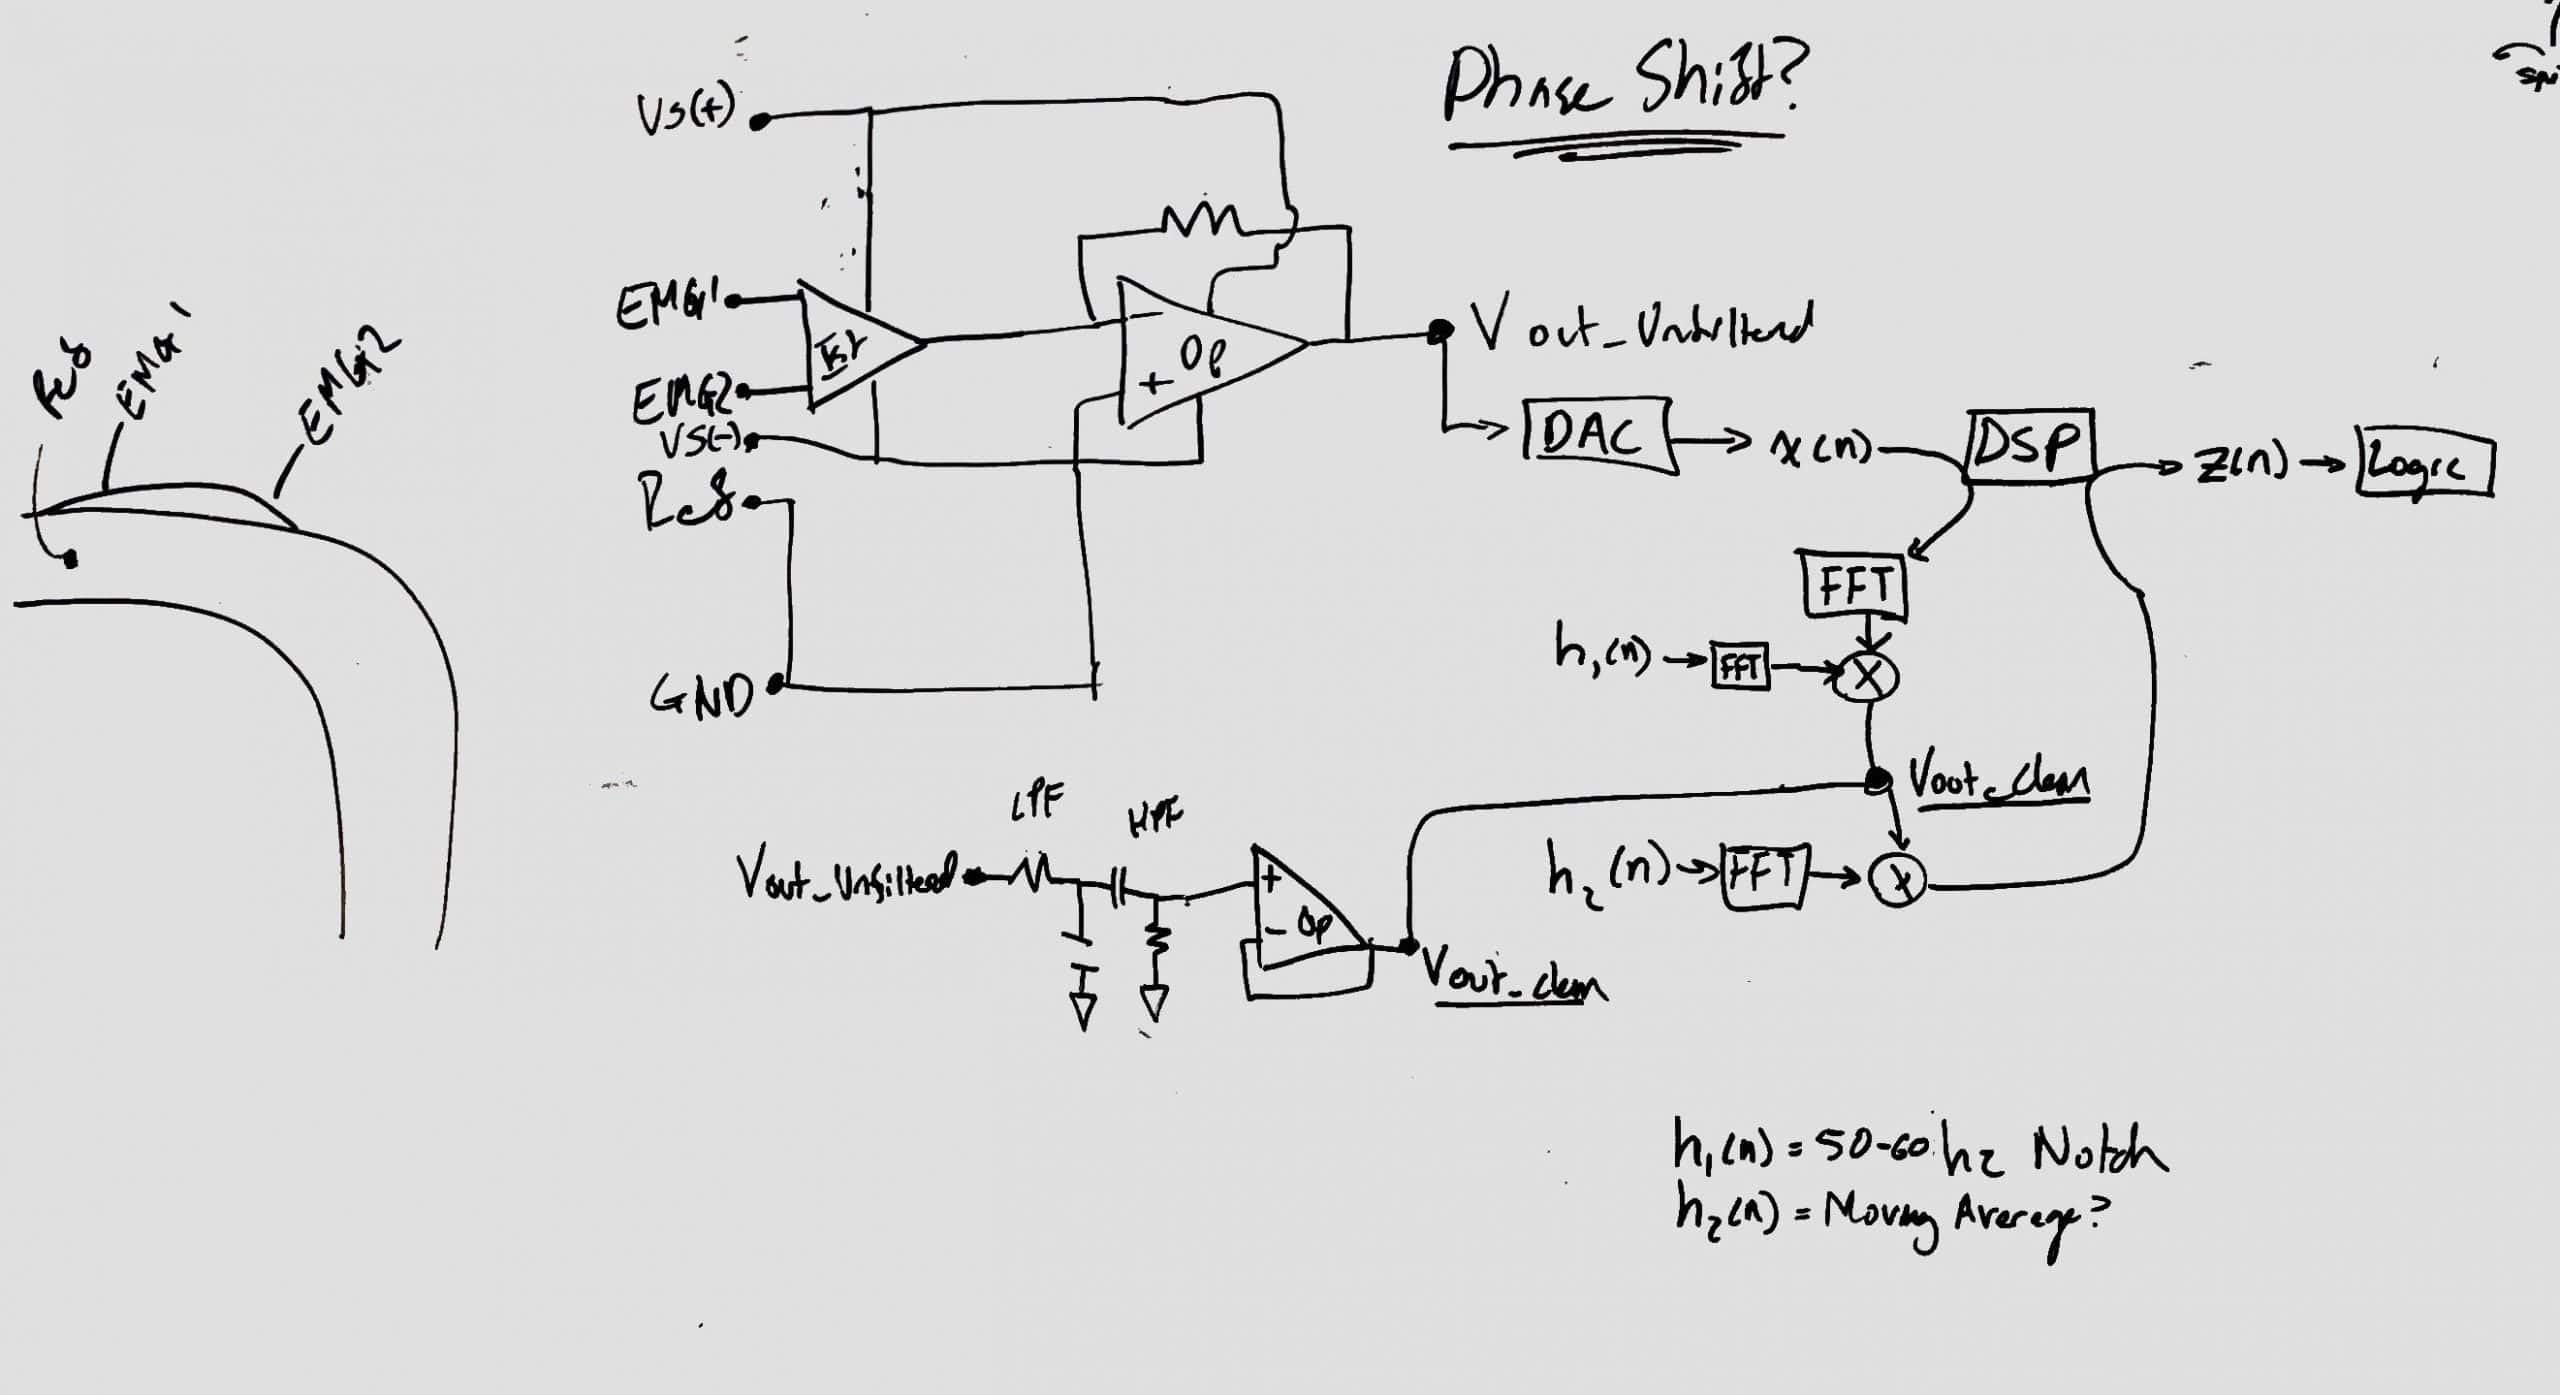 Phase Shift?
Vs(+)
EMG1
EMG2
Vs(-)
Ref
GND
Inst
Op
- +
V out_Unfiltered
DAC
x(n)
DSP
z(n)
Logic
Ref
EMG1
EMG2
FFT
h1(n)
FFT
X
Vout_clean
h2(n)
FFT
X
LPF
HPF
Vout_Unfiltered
+
- Op
Vout_clean
h1(n) = 50-60 hz Notch
h2(n) = Moving Average?